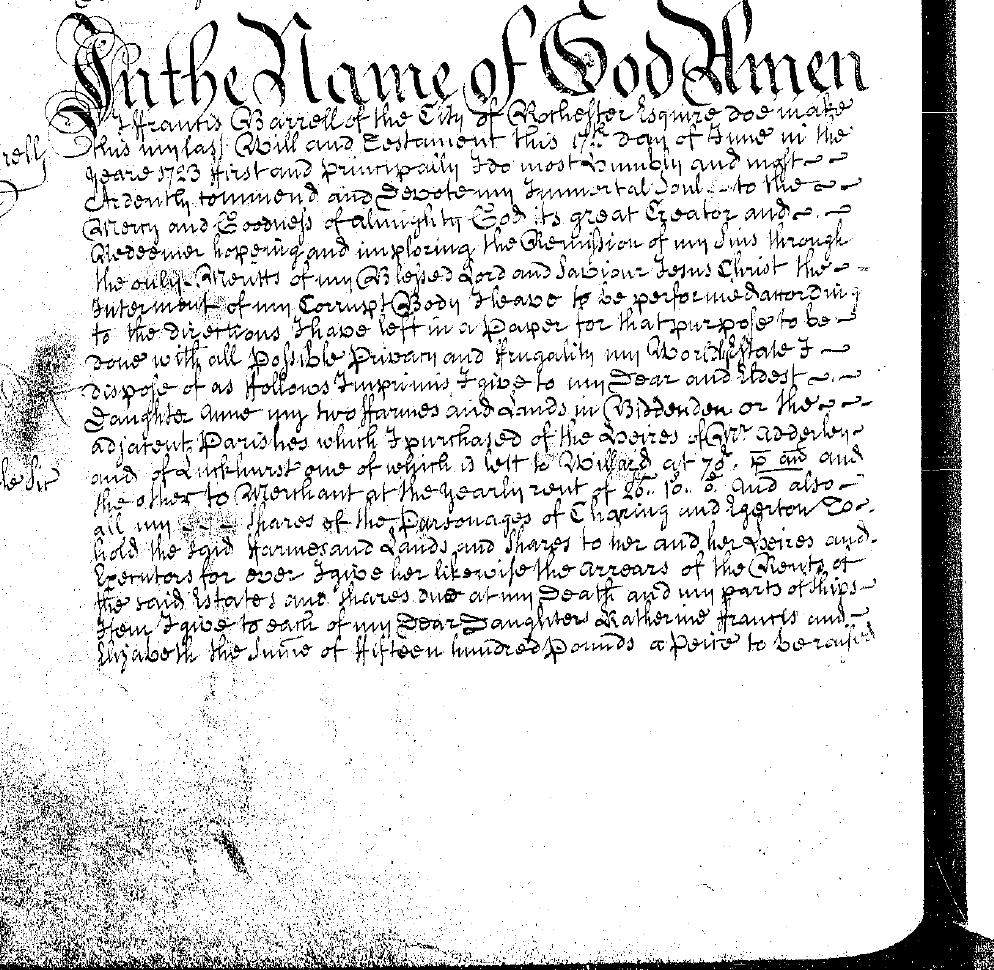 In the Name of God Amen
I Francis Barrell of the City of Rochester Esquire doe make
this my last Will and Testament this 17th day of June in the
yeare 1723 First and principally I do most humbly and most
Ardently commend and Devote my Immortal Soul to the
Mercy and Goodness of Almighty God its great Creator and
Redeemer hopeing and imploring the Remission of my Sins through
the only Meritts of my Blessed Lord and Saviour Jesus Christ the
Interment of my Corrupt Body I leave to be performed according
to the directions I have left in a Paper for that purpose to be
done with all Possible Privacy and Frugality my Worldly Estate I
dispose of as Follows Imprimis I give to my Dear and Eldest
Daughter Anne my two Farmes and Lands in Biddenden or the
adjacent Parishes which I purchased of the Heires of Mr. Adderley
and of Luckhurst one of which is left to Willard at p and
the other to Merchant at the yearly rent of and also
all my shares of the Parsonages of Charing and Egerton To
hold the said Farmes and Lands and Shares to her and her Heires and
Executors for ever I give her likewise the arrears of the Rents of
the said Estates and shares due at my Death and my parts of ships
Item I give to each of my Dear Daughters Katherine Francis and
Elizabeth the Sume of Fifteen hundred Pounds a peice to be raised